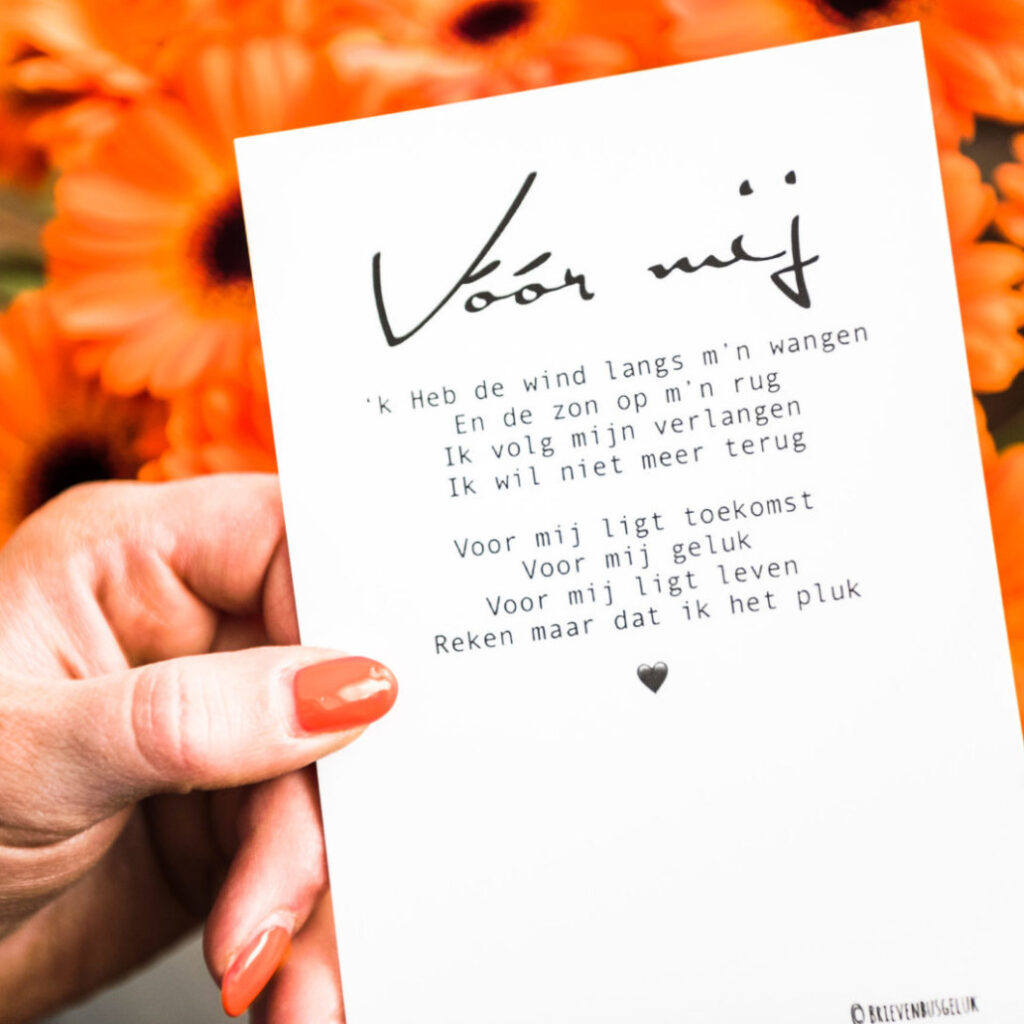 Vóór mij
'k Heb de wind langs m'n wangen
En de zon op m'n rug
Ik volg mijn verlangen
Ik wil niet meer terug
Voor mij ligt toekomst
Voor mij geluk
Voor mij ligt leven
Reken maar dat ik het pluk
© BRIEVENBUSGELUK